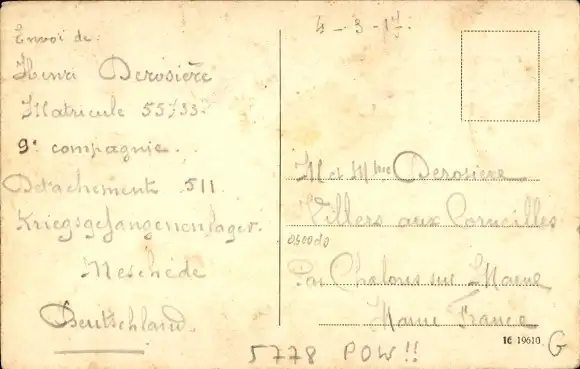 Envoi de
Henri Derosière
Matricule 55733.
9e compagnie.
Detachement 511
Kriegsgefangenenlager.
Meschede
Deutschland.
4-3-17.
M et Mme Derosiere
Villers aux Corneilles
Par Chalons sur Marne
Marne France
1C 19610
G
5778 POW!!